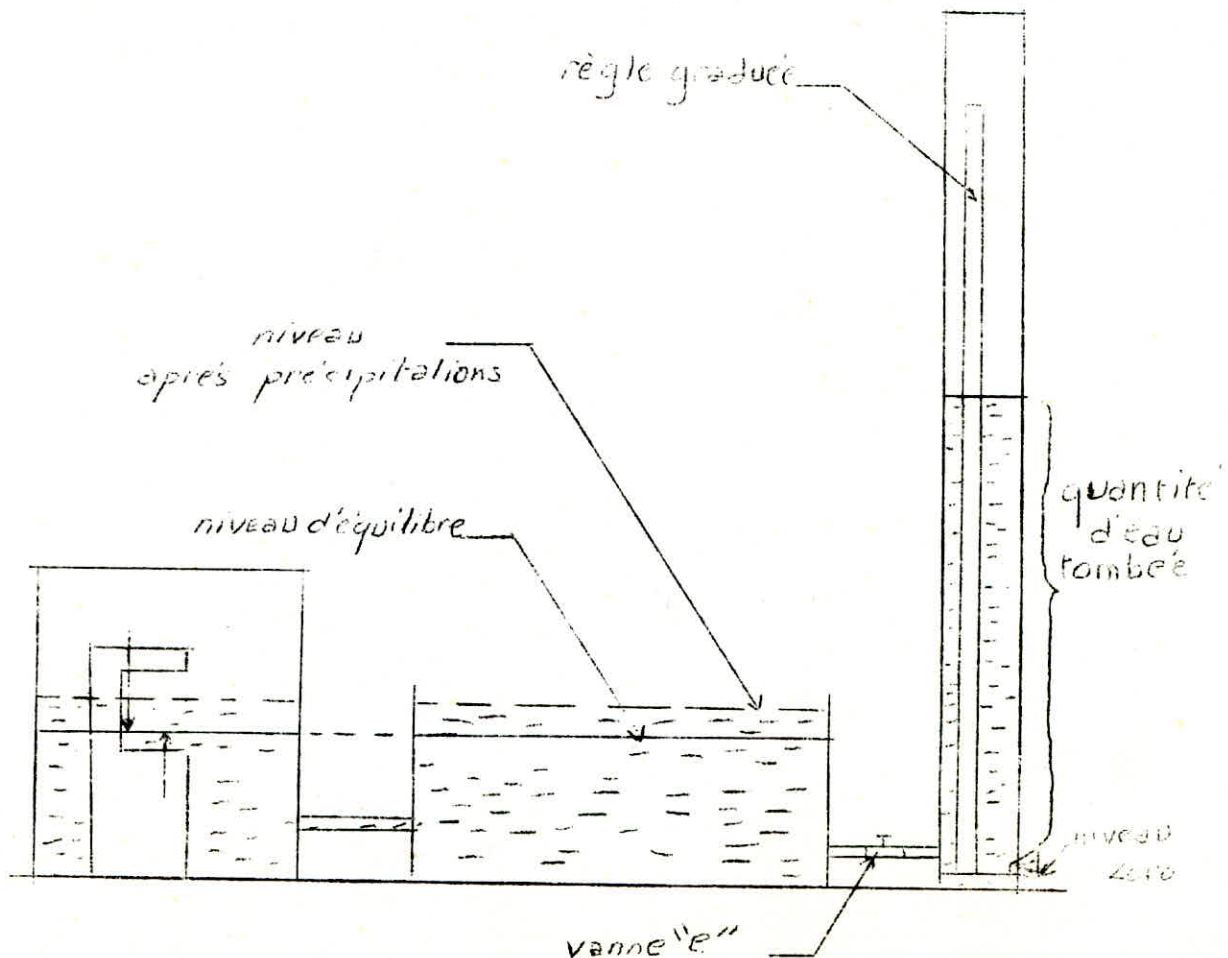 règle graduée
niveau
après précipitations
niveau d'équilibre
quantité
d'eau
tombée
niveau
zéro
vanne "e"